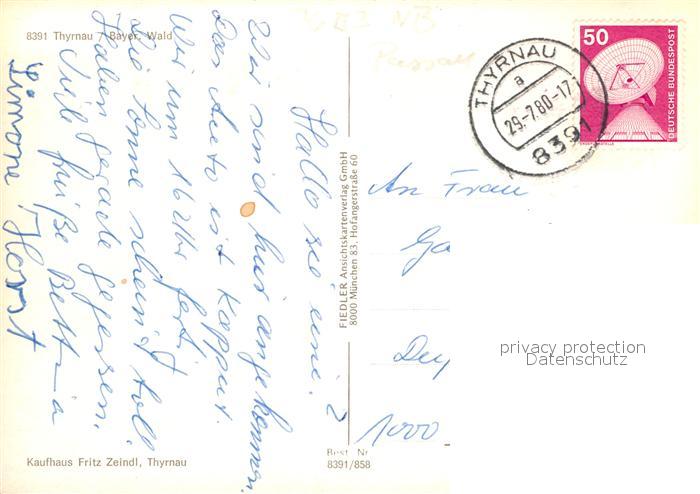 8391 Thyrnau / Bayer. Wald
Hallo
Wir sind hier angekommen.
Das Auto ist kaput.
Wir um 16 Uhr fort.
Die Sonne scheint toll.
Haben gerade gegessen.
Viele Grüße Bettina
Simone Horst
Kaufhaus Fritz Zeindl, Thyrnau
FIEDLER Ansichtskartenverlag GmbH
8000 München 83, Hofangerstraße 60
Best. Nr.
8391/858
Passau
THYRNAU
a
29.-7.80-17
8391
50
DEUTSCHE BUNDESPOST
An Frau
Ga
1000
privacy protection
Datenschutz